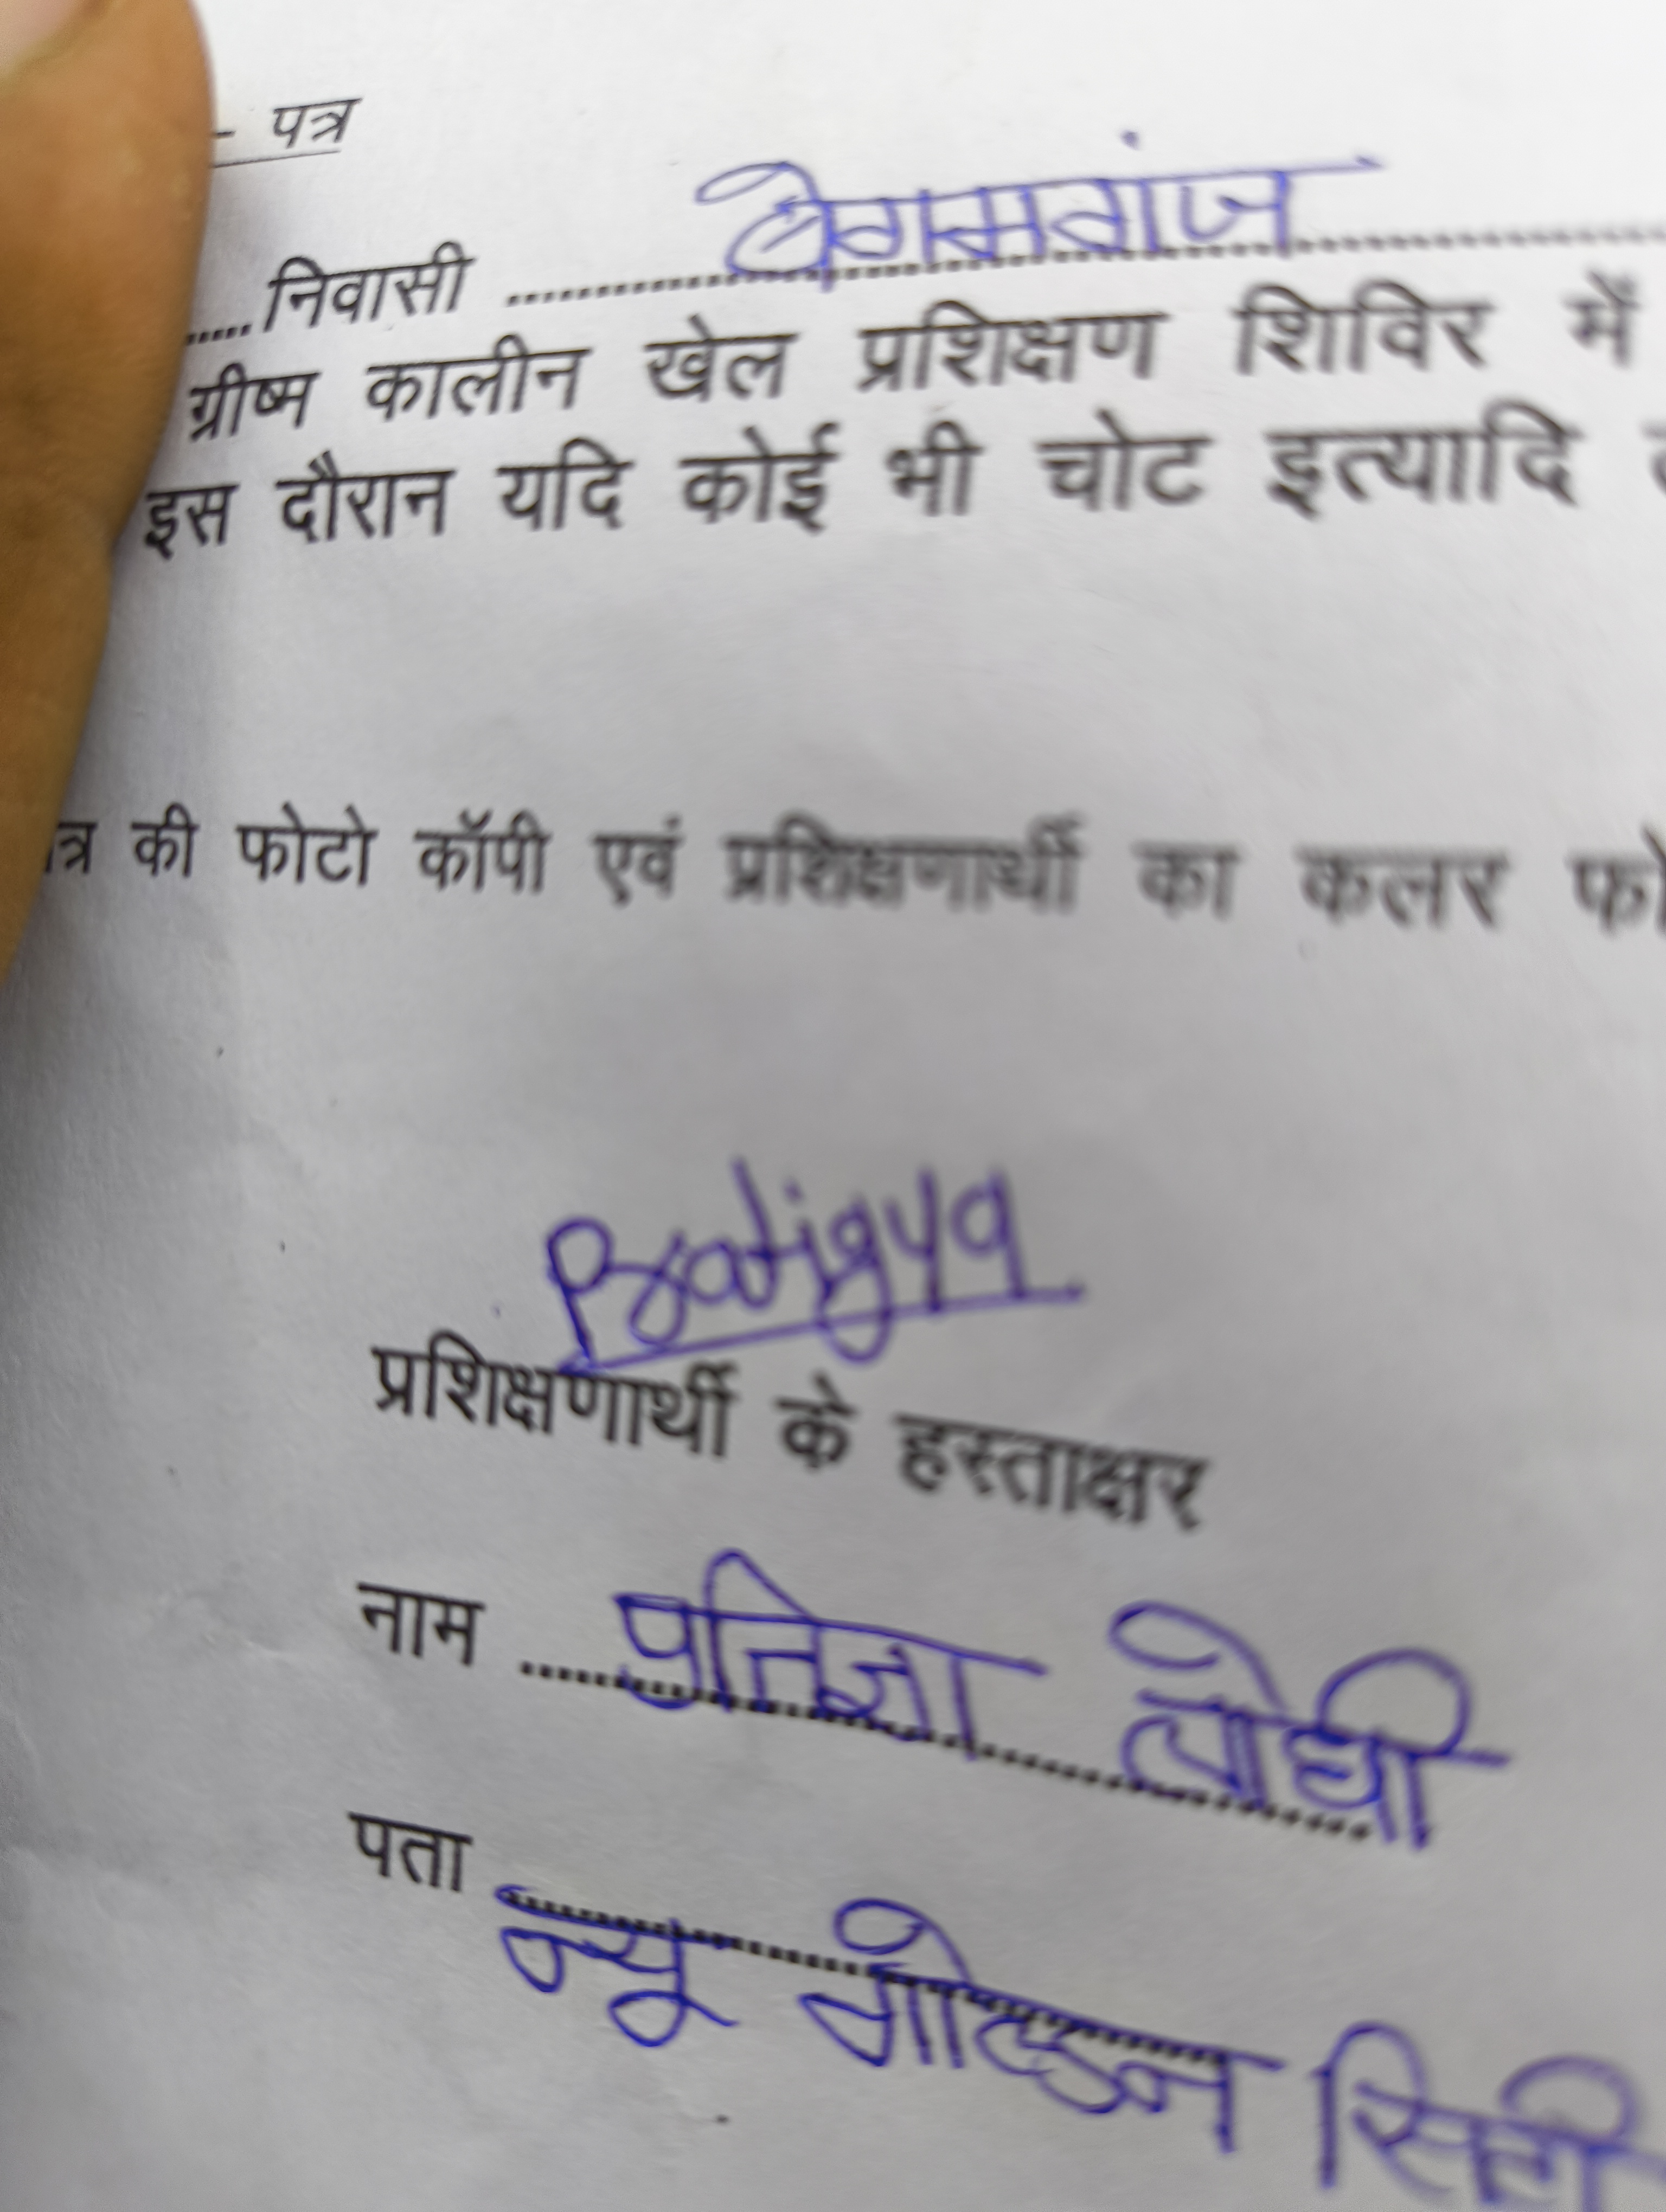 - पत्र
.....निवासी ..........बेगमगंज..........
ग्रीष्म कालीन खेल प्रशिक्षण शिविर में
इस दौरान यदि कोई भी चोट इत्यादि
की फोटो कॉपी एवं प्रशिक्षणार्थी का कलर
Pratigya
प्रशिक्षणार्थी के हस्ताक्षर
नाम ..........प्रतिज्ञा लोधी
पता ..........
न्यू गोल्डन सिटी